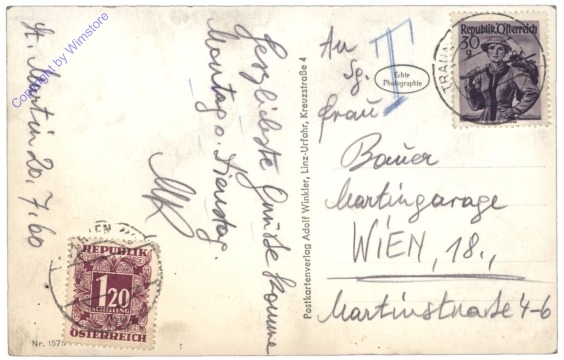 Copyright by Wimstore
St. Martin 20. 7. 60
Herzlichste Grüße komme
Montag o. Dienstag.
An
Sg.
Frau
Bauer
Martingarage
WIEN, 18.,
Martinstraße 4-6
T
Echte
Photographie
Republik Österreich
30
g
TRAUN
REPUBLIK
1 20
SCHILLING
ÖSTERREICH
WIEN
Postkartenverlag Adolf Winkler, Linz-Urfahr, Kreuzstraße 4
Nr. 1575